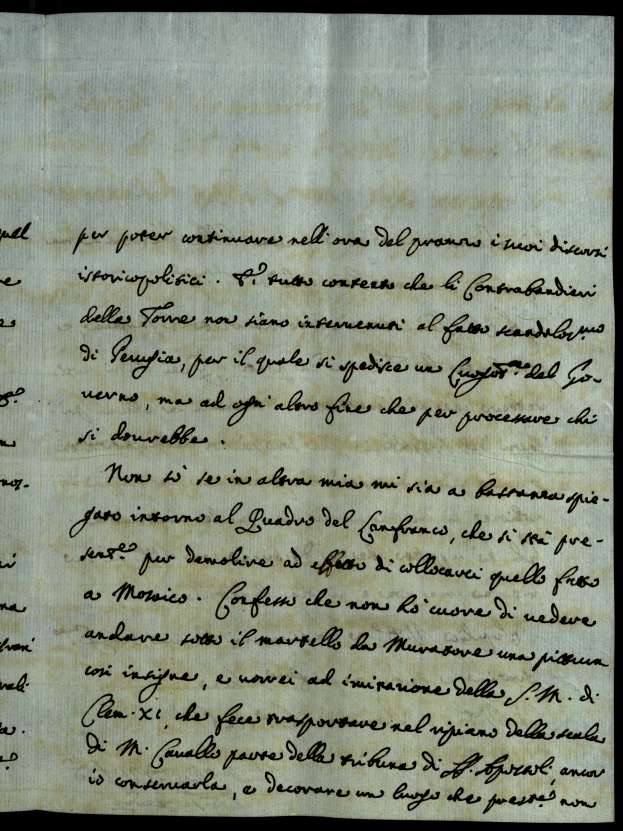 per poter continuare nell'ora del pranzo i suoi discorsi
istoricopolitici. tutto contento che li Contrabandieri
della Torre non siano intervenuti al fatto scandolos.mo
di Perugia, per il quale si spedisce un Luogot.te del Go-
verno, ma ad ogn'altro fine che per processare chi
si dovrebbe.
Non sò se in altra mia mi sia a bastanza spie-
gato intorno al Quadro del Lanfranco, che si stà pre-
sent.e per demolire ad effetto di collocarci quello fatto
a Mosaico. Confesso che non hò cuore di vedere
andare sotto il martello da Muratore una pittura
così insigne, e vorrei ad imitazione della S. M. di
Clem. XI, che fece trasportare nel ripiano della scala
di M. Cavallo parte della tribuna di SS. Apostoli, ancor
io conservarla, e decorare un luogo che prest.e non